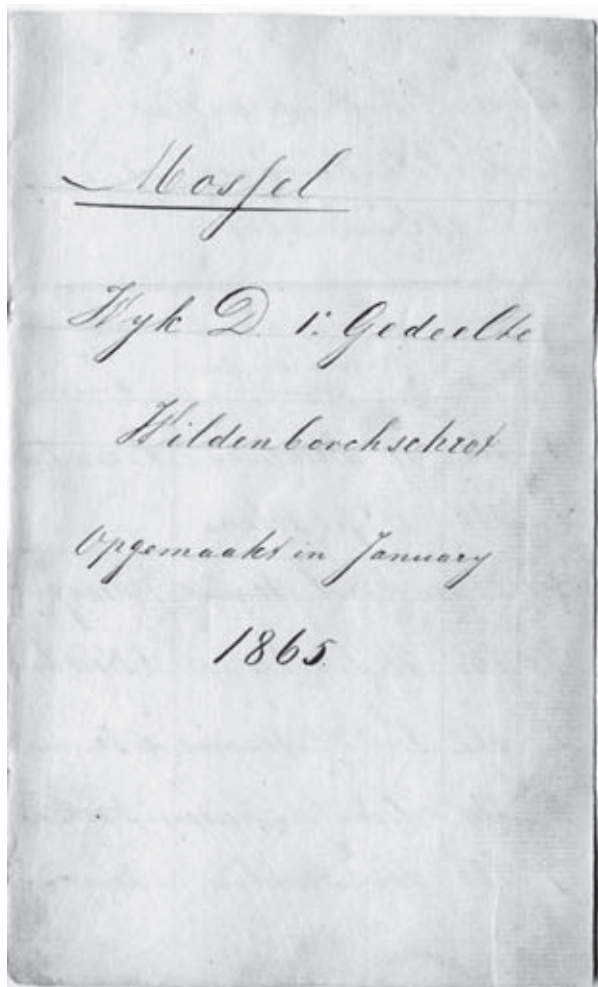 Mossel
Wyk D. 1e Gedeelte
Wildenborchschrot
Opgemaakt in January
1865.